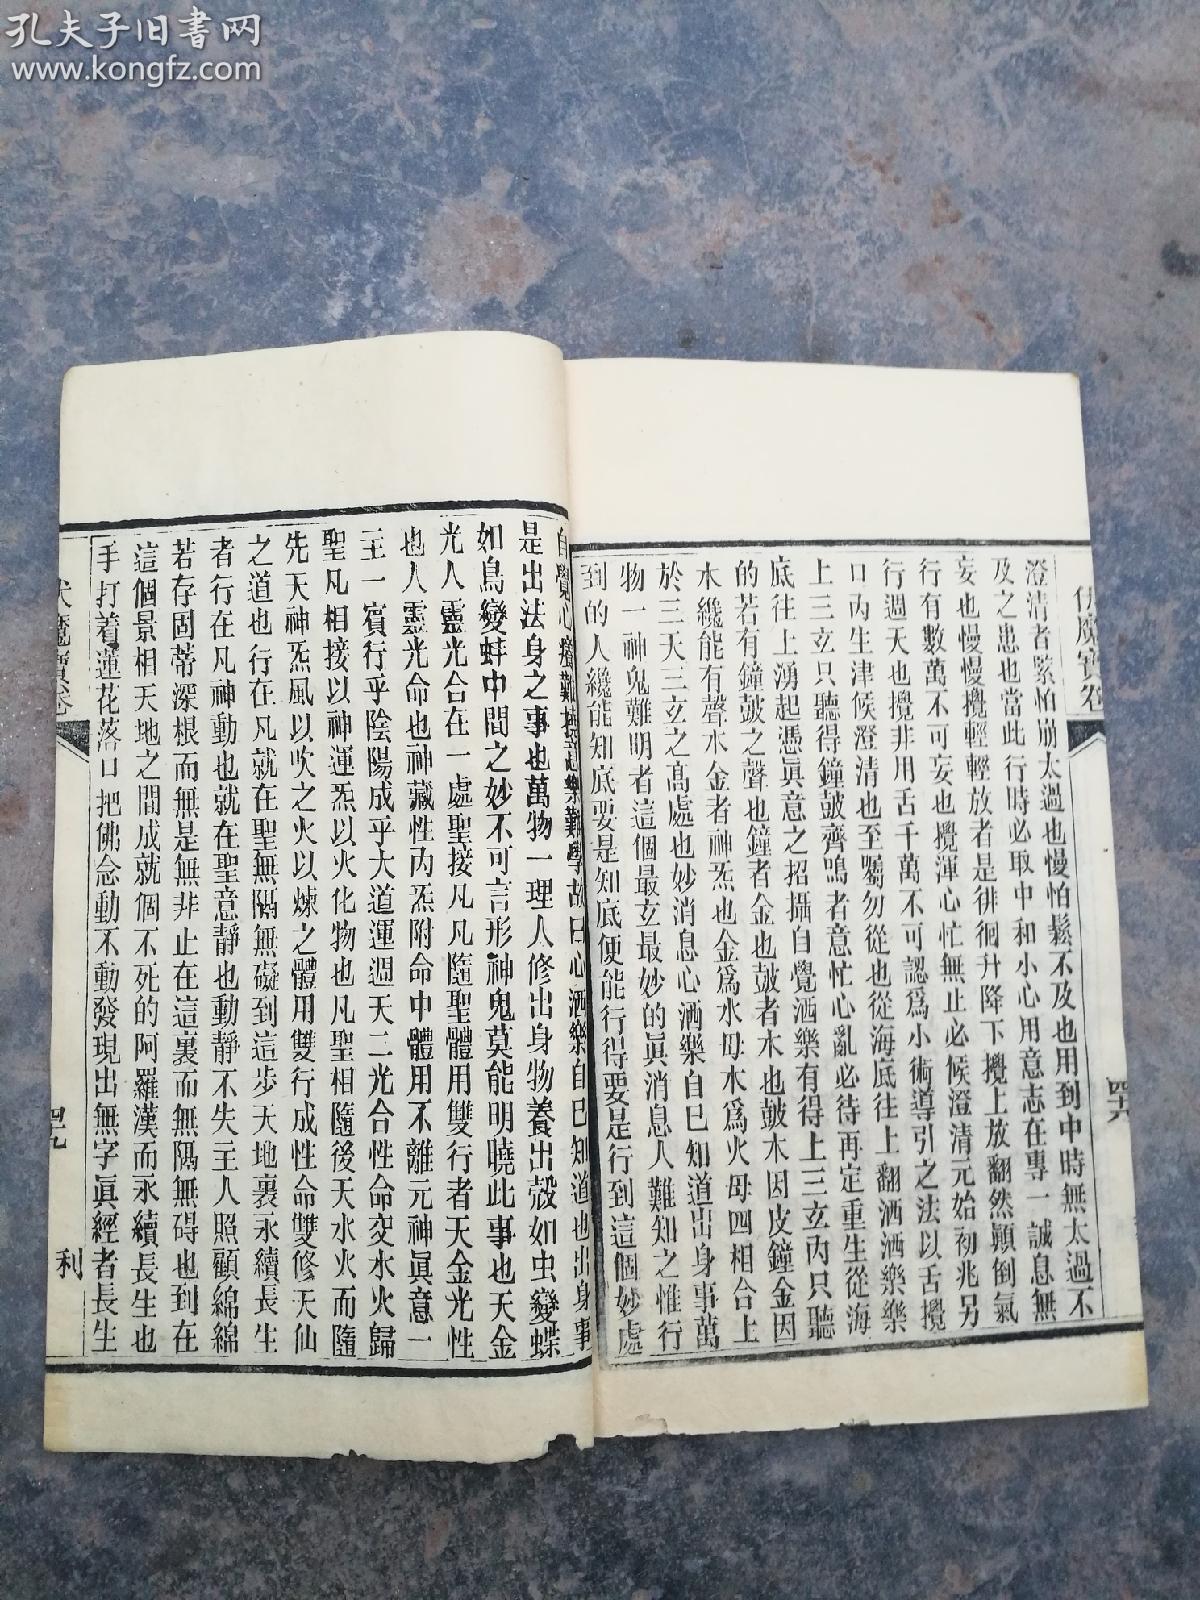 孔夫子旧书网
www.kongfz.com
魔寶卷
四六
澄清者緊怕崩太過也慢怕鬆不及也用到中時無太過不
及之患也當此行時必取中和小心用意志在專一誠息無
妄也慢慢攪輕輕放者是徘徊升降下攪上放翻然顛倒氣
行有數萬不可妄也攪渾心忙無止必候澄清元始初兆另
行週天也攪非用舌千萬不可認爲小術導引之法以舌攪
口內生津候澄清也至囑勿從也從海底往上翻洒洒樂樂
上三玄只聽得鐘皷齊鳴者意忙心亂必待再定重生從海
底往上湧起憑眞意之招攝自覺洒樂有得上三玄內只聽
的若有鐘皷之聲也鐘者金也皷者水也皷木因皮鐘金因
水纔能有聲水金者神炁也金爲水母水爲火母四相合上
於三天三玄之高處也妙消息心洒樂自巳知道出身事萬
物一神鬼難明者這個最玄最妙的眞消息人難知之惟行
到的人纔能知底要是知底便能行得要是行到這個妙處
自覺心難故曰心洒樂自巳知道也出身事
是出法身之事也萬物一理人修出身物養出殼如虫變蝶
如鳥變蚌中間之妙不可言形神鬼莫能明曉此事也天金
光人靈光合在一處聖接凡凡隨聖體用雙行者天金光性
也人靈光命也神藏性內炁附命中體用不離元神眞意一
主一賓行乎陰陽成乎大道運週天二光合性命交水火歸
聖凡相接以神運炁以火化物也凡聖相隨後天水火而隨
先天神炁風以吹之火以煉之體用雙行成性命雙修天仙
之道也行在凡就在聖無隔無礙到這步天地裏永續長生
者行在凡神動也就在聖意靜也動靜不失主人照顧綿綿
若存固蒂深根而無是無非止在這裏而無隔無碍也到在
這個景相天地之間成就個不死的阿羅漢而永續長生也
手打着蓮花落口把佛念動不動發現出無字眞經者長生
伏魔寶卷
四九
利